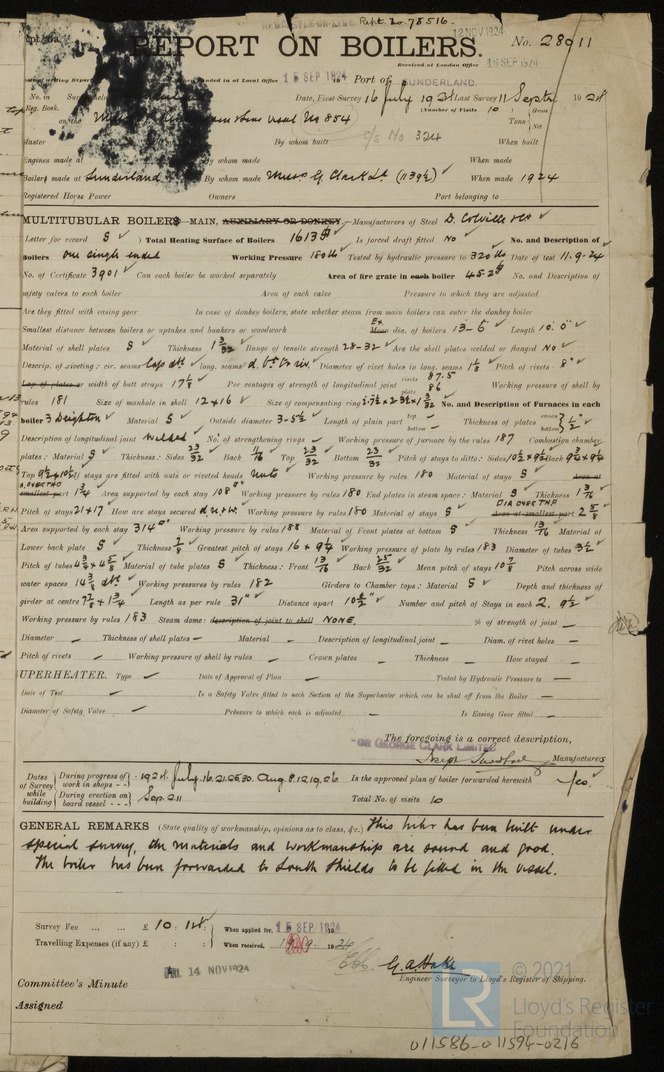 Rept. No. 78516.
12 NOV 1924
REPORT ON BOILERS.
No. 28911
Received at London Office 16 SEP 1924
15 SEP 1924 Port of SUNDERLAND.
No. in
Reg. Book.
Date, First Survey 16 July 1924 Last Survey 11 Septr. 1924
(Number of Visits 10 )
Gross
Tons
Net
on the vessel No 854
S/S No 324
Master By whom built When built
Engines made at By whom made When made
Boilers made at Sunderland By whom made Messrs G. Clark Ld (1139½) When made 1924
Registered Horse Power Owners Port belonging to
MULTITUBULAR BOILERS – MAIN, AUXILIARY OR DONKEY. – Manufacturers of Steel D. Colville
Letter for record S ) Total Heating Surface of Boilers 1613 Is forced draft fitted No No. and Description of
Boilers One single ended Working Pressure 180 lb Tested by hydraulic pressure to 320 lb Date of test 11.9.24
No. of Certificate 3901 Can each boiler be worked separately Area of fire grate in each boiler 45.2 No. and Description of
safety valves to each boiler Area of each valve Pressure to which they are adjusted
Are they fitted with easing gear In case of donkey boilers, state whether steam from main boilers can enter the donkey boiler
Smallest distance between boilers or uptakes and bunkers or woodwork Ex. Mean dia. of boilers 13-6 Length 10'.0"
Material of shell plates S Thickness 1 3/32 Range of tensile strength 28-32 Are the shell plates welded or flanged No
Descrip. of riveting: cir. seams lap long. seams Diameter of rivet holes in long. seams 1 1/8 Pitch of rivets 8"
Lap of plates or width of butt straps 17 Per centages of strength of longitudinal joint rivets 87.5 plate 86 Working pressure of shell by
rules 181 Size of manhole in shell 12 x 16 Size of compensating ring No. and Description of Furnaces in each
boiler 3 Deighton Material S Outside diameter 3-5½ Length of plain part top bottom Thickness of plates crown bottom ½"
Description of longitudinal joint welded No. of strengthening rings – Working pressure of furnace by the rules 187 Combustion chamber
plates: Material S Thickness: Sides 23/32 Back 11/16 Top 23/32 Bottom 23/32 Pitch of stays to ditto: Sides 10½ x 9½ Back 9¾ x 9¼
Top 9½ x 10½ If stays are fitted with nuts or riveted heads Nuts Working pressure by rules 180 Material of stays S Area at
smallest part 1¾ Area supported by each stay 108 Working pressure by rules 180 End plates in steam space: Material S Thickness 1 3/16
Pitch of stays 21 x 17 How are stays secured Working pressure by rules 180 Material of stays S Area at smallest part 2 5/8
Area supported by each stay 314 Working pressure by rules 188 Material of Front plates at bottom S Thickness 13/16 Material of
Lower back plate S Thickness 7/8 Greatest pitch of stays 16 x 9¼ Working pressure of plate by rules 183 Diameter of tubes 3½
Pitch of tubes 4¾ x 4 5/8 Material of tube plates S Thickness: Front 13/16 Back 25/32 Mean pitch of stays 10 7/8 Pitch across wide
water spaces 14 3/8 Working pressures by rules 182 Girders to Chamber tops: Material S Depth and thickness of
girder at centre 7 7/8 x 1¾ Length as per rule 31" Distance apart 10½" Number and pitch of Stays in each 2, 9½
Working pressure by rules 183 Steam dome: description of joint to shell NONE. % of strength of joint –
Diameter – Thickness of shell plates – Material – Description of longitudinal joint – Diam. of rivet holes –
Pitch of rivets – Working pressure of shell by rules – Crown plates – Thickness – How stayed –
SUPERHEATER. Type – Date of Approval of Plan – Tested by Hydraulic Pressure to –
Date of Test – Is a Safety Valve fitted to each Section of the Superheater which can be shut off from the Boiler –
Diameter of Safety Valve – Pressure to which each is adjusted – Is Easing Gear fitted –
The foregoing is a correct description,
GEORGE CLARK LIMITED
Manufacturers
Dates of Survey while building
During progress of work in shops - - 1924. July. 16. 21. 25. 30. Aug. 8. 12. 19. 26 Is the approved plan of boiler forwarded herewith Yes.
During erection on board vessel - - - Sep. 2. 11 Total No. of visits 10
GENERAL REMARKS (State quality of workmanship, opinions as to class, &c.) This boiler has been built under
special survey, the materials and workmanship are sound and good.
The boiler has been forwarded to South Shields to be fitted in the vessel.
Survey Fee ... ... £ 10 : When applied for, 15 SEP 1924
Travelling Expenses (if any) £ : : When received, 19.9.1924
G. A. Hake
Engineer Surveyor to Lloyd's Register of Shipping.
FRI. 14 NOV 1924
Committee's Minute
Assigned
LR
© 2021
Lloyd's Register
Foundation
011586-011594-0216